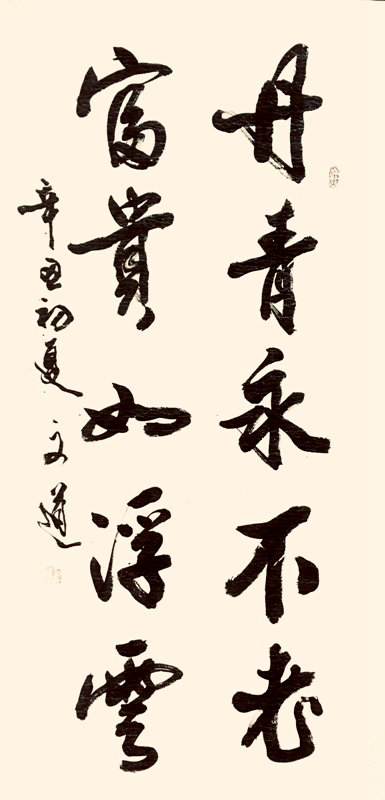 丹青永不老
富貴如浮雲
辛丑初夏 文道